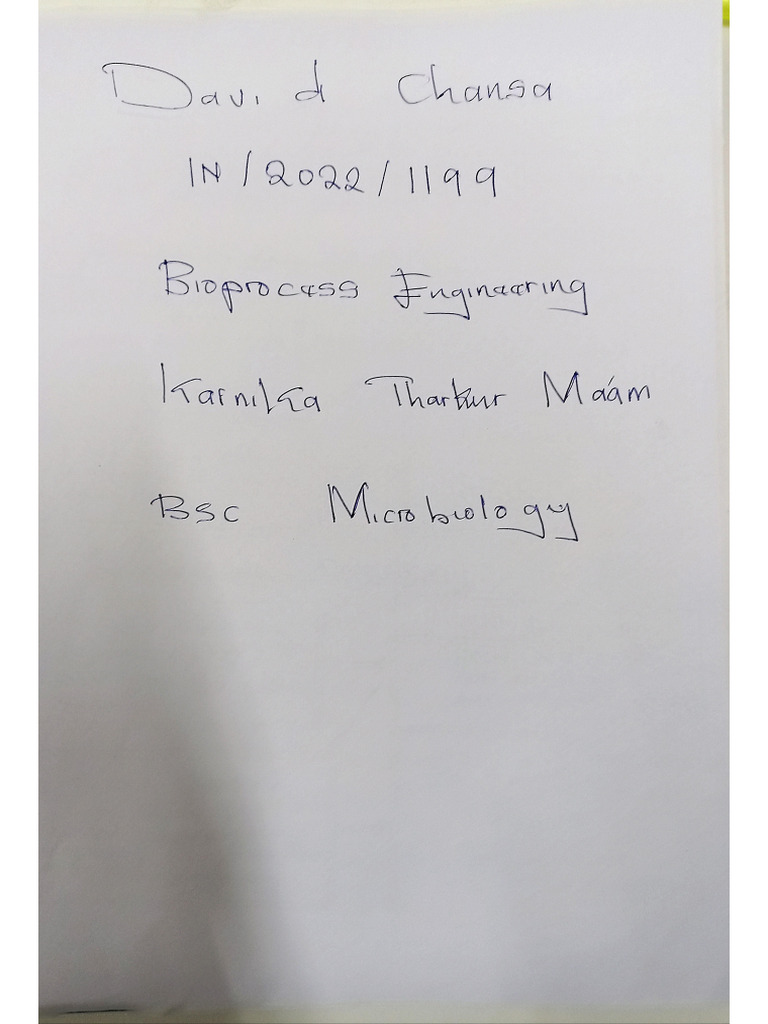 David Chansa
IN/2022/1199
Bioprocess Engineering
Karnika Tharkur Ma'am
BSC Microbiology